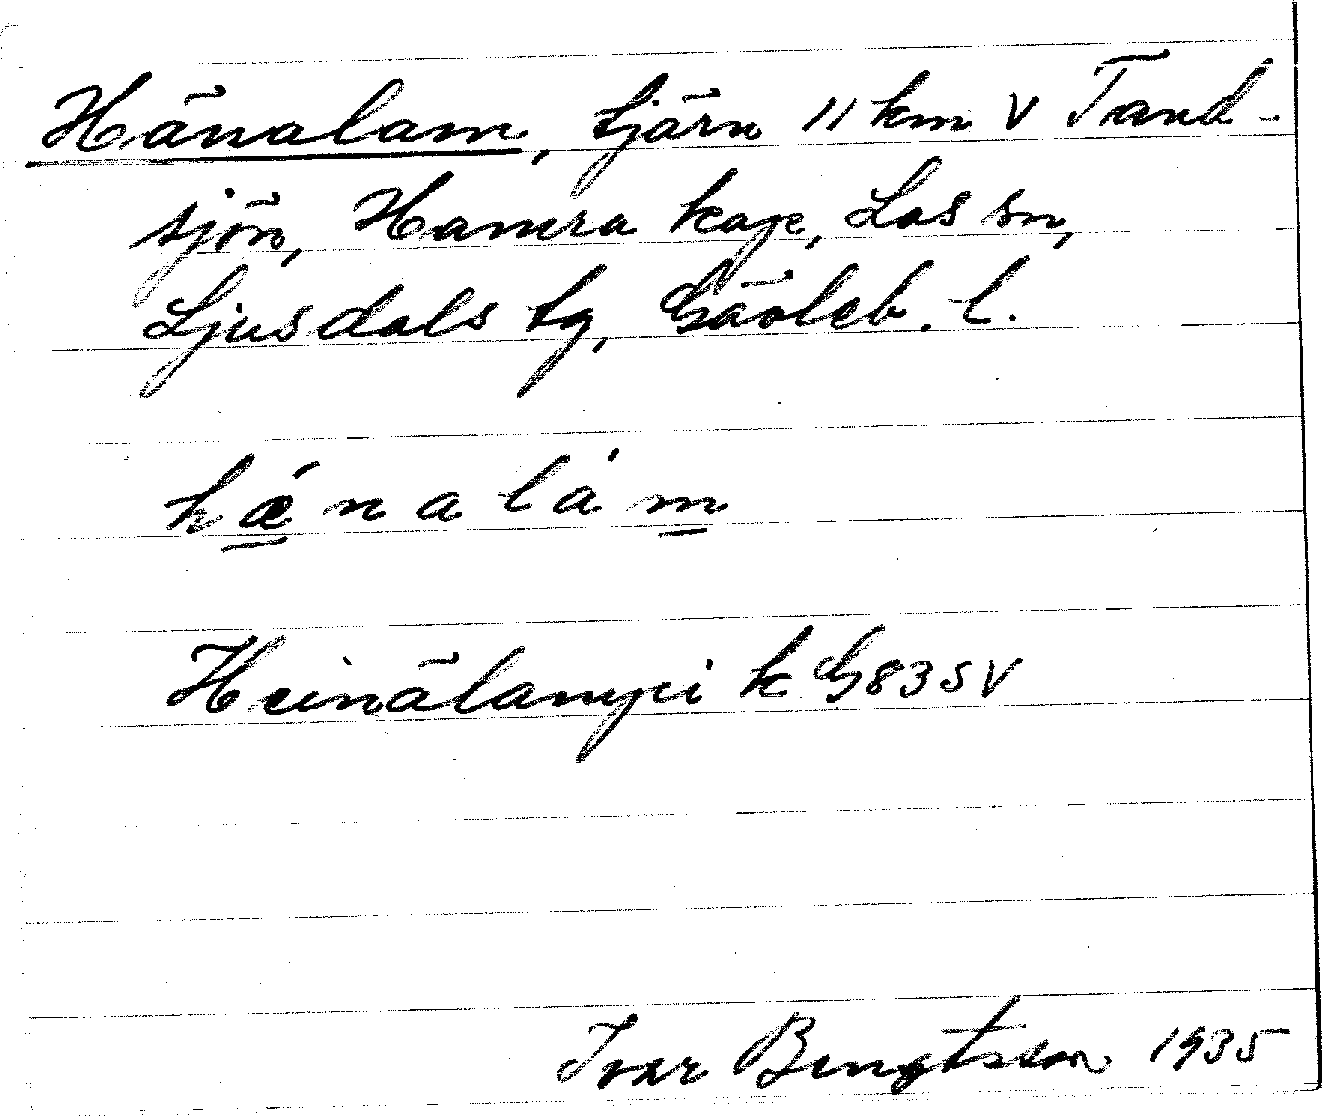 Hänalam, tjärn 11 km V Tand-
sjön, Hamra kap, Los sn,
Ljusdals tg, Gävleb. l.
hǽnalàm
Heinälampi k G83SV
Ivar Bengtsson 1935